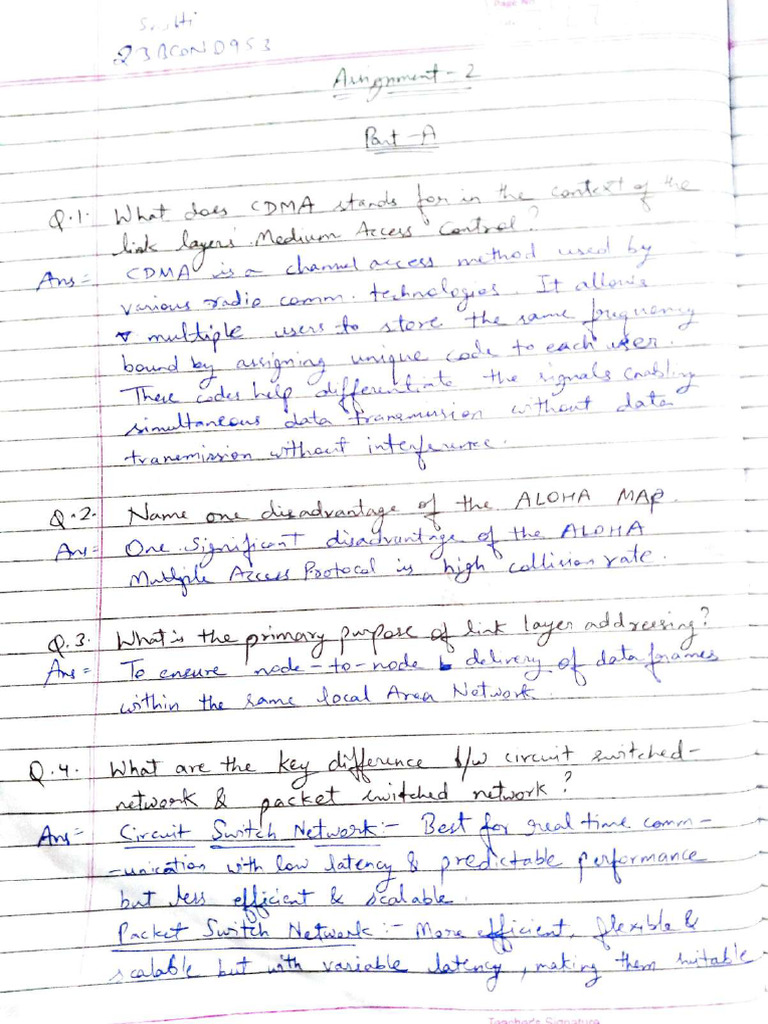 23BCOND953
Assignment-2
Part-A
Q.1. What does CDMA stands for in the context of the
link layers Medium Access Control?
Ans= CDMA is a channel access method used by
various radio comm. technologies. It allows
multiple users to store the same frequency
bound by assigning unique code to each user.
These codes help differentiate the signals enabling
simultaneous data transmission without data
transmission without interference.
Q.2. Name one disadvantage of the ALOHA MAP.
Ans= One significant disadvantage of the ALOHA
Multiple Access Protocol is high collision rate.
Q.3. What is the primary purpose of link layer addressing?
Ans= To ensure node-to-node delivery of data frames
within the same local Area Network.
Q.4. What are the key difference b/w circuit switched-
network & packet switched network?
Ans= Circuit Switch Network:- Best for real time comm-
-unication with low latency & predictable performance
but less efficient & scalable.
Packet Switch Network:- More efficient, flexible &
scalable but with variable latency, making them suitable
Teacher's Signature